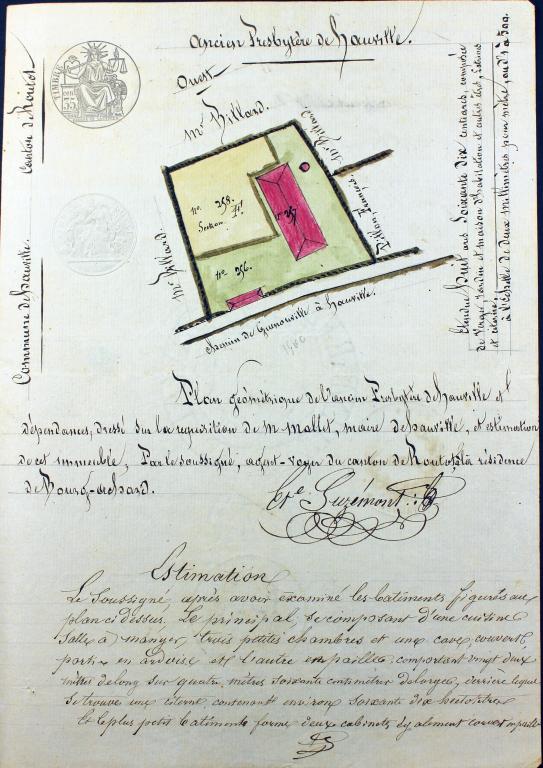 Ancien Presbytère de hauville.
Ouest
Canton de Routot
Commune de hauville
TIMBRE
Mr Billard.
Mr Billard
Mr Billard
Tillon, François.
no. 258.
Section A
no 257
no. 256.
chemin de Guenouville à hauville.
Etendue huit ares soixante dix centiares, composée
de verger, jardin et maison d'habitation et autres
et citerne.
à l'Echelle de deux millimètres pour mètre, ou d'1 à 500.
Plan géométrique de l'ancien Presbytère de hauville et
dépendances, dressé sur la réquisition de m mallet, maire de hauville, et estimation
de cet immeuble, Par le soussigné, agent-voyer du canton de Routot, à la résidence
de Bourg-achard.
Estimation
Le Soussigné, après avoir examiné les batiments figurés au
plan ci dessus, Le principal se composant d'une cuisine
Salle à manger, trois petites chambres et une cave, couvert
partie en ardoise et l'autre en paille, comportant vingt deux
mètres de long sur quatre mètres soixante centimètres de large, derrière lequel
se trouve une citerne contenant environ soixante dix hectolitres
Et le plus petit batiment forme deux cabinets également couvert en paille